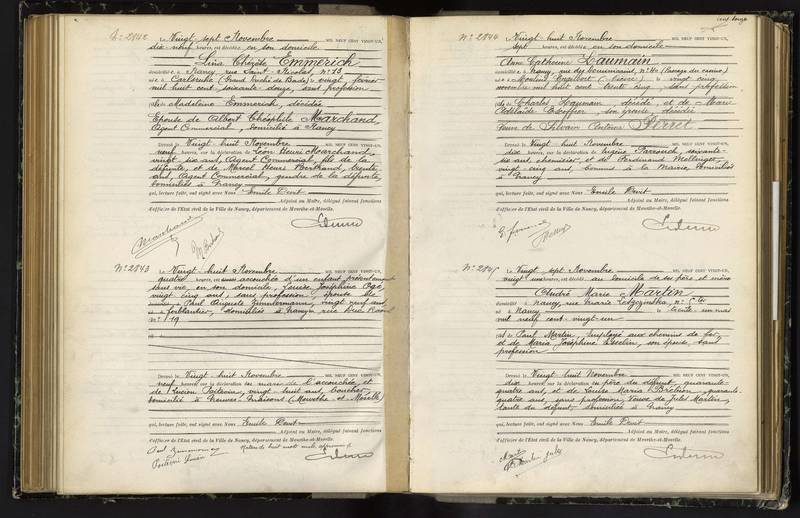 N° 2842
Le Vingt-sept Novembre MIL NEUF CENT VINGT-UN,
dix neuf heures, est décédée en son domicile
Lina Thérèse Emmerich
domiciliée à Nancy, rue Saint-Nicolas, n°
née à Carlsruhe (Grand Duché de Bade) le vingt février
mil huit cent soixante douze, sans profession
Madeleine Emmerich, décédée
Epouse de Albert Théophile Marchand
Agent Commercial, domicilié à Nancy
Dressé le Vingt huit Novembre MIL NEUF CENT VINGT-UN,
neuf heures, sur la déclaration de Léon Henri Marchand
vingt six ans, Agent Commercial, fils de la
défunte, et de Marcel Henri Bertrand, trente
ans, Agent Commercial, gendre de la défunte,
domiciliés à Nancy
qui, lecture faite, ont signé avec Nous Emile Devit
Adjoint au Maire, délégué faisant fonctions
d'officier de l'Etat civil de la Ville de Nancy, département de Meurthe-et-Moselle.
Marchand
N° 2843
Le Vingt huit Novembre MIL NEUF CENT VINGT-UN,
quatre heures accouchée d'un enfant présentement
sans vie, en son domicile, Louise Joséphine
vingt cinq ans, sans profession, épouse de
Paul Auguste Zimmermann, vingt neuf ans
ferblantier, domiciliés à Nancy, rue
n° 119
Dressé le Vingt huit Novembre MIL NEUF CENT VINGT-UN,
neuf heures, sur la déclaration du mari de l'accouchée, et
de Lucien Poitevin, vingt huit ans, boucher
domicilié à Neuves-Maisons (Meurthe et Moselle)
qui, lecture faite, ont signé avec Nous Emile Devit
Adjoint au Maire, délégué faisant fonctions
d'officier de l'Etat civil de la Ville de Nancy, département de Meurthe-et-Moselle.
Paul Zimmermann
N° 2844
Le Vingt-huit Novembre MIL NEUF CENT VINGT-UN,
sept heures, est décédée en son domicile
Anne Catherine Daumain
domiciliée à Nancy, rue n° 40 (Passage du casino)
née à (Nièvre) le vingt cinq
novembre mil huit cent trente cinq, sans profession
de Charles Daumain, décédé, et de Marie
Adélaïde son épouse, décédée
Veuve de Silvain Antoine Perret
Dressé le Vingt huit Novembre MIL NEUF CENT VINGT-UN,
dix heures, sur la déclaration de Eugène soixante
six ans, chemisier, et de Ferdinand
vingt cinq ans, Commis à la Mairie, domiciliés
à Nancy
qui, lecture faite, ont signé avec Nous Emile Devit
Adjoint au Maire, délégué faisant fonctions
d'officier de l'Etat civil de la Ville de Nancy, département de Meurthe-et-Moselle.
N° 2845
Le Vingt-sept Novembre MIL NEUF CENT VINGT-UN,
vingt une heures au domicile de ses père et mère
André Marie Martin
domicilié à Nancy, rue Marie Leckzinska, n°
né à Nancy le trente un mai
mil neuf cent vingt-un
de Paul Martin, employé aux chemins de fer,
et de Maria Joséphine son épouse, sans
profession
Dressé le Vingt huit Novembre MIL NEUF CENT VINGT-UN,
dix heures, sur la déclaration du père du défunt, quarante
quatre ans, et de Louise Maria quarante
quatre ans, sans profession, Veuve de Jules Martin,
tante du défunt, domiciliés à Nancy
qui, lecture faite, ont signé avec Nous Emile Devit
Adjoint au Maire, délégué faisant fonctions
d'officier de l'Etat civil de la Ville de Nancy, département de Meurthe-et-Moselle.